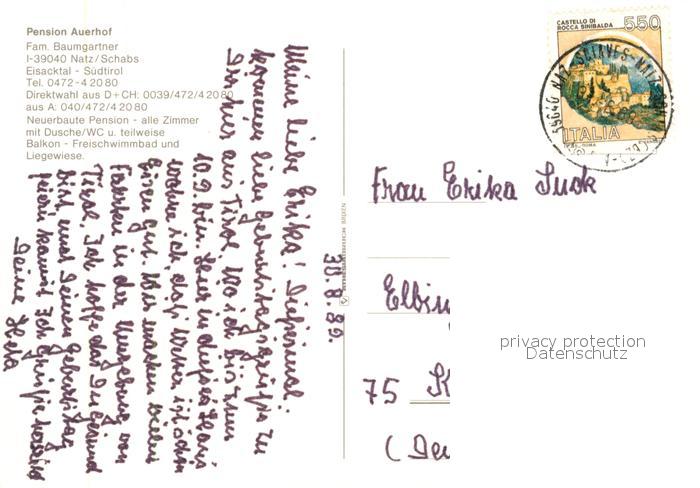 Pension Auerhof
Fam. Baumgartner
I-39040 Natz/Schabs
Eisacktal - Südtirol
Tel. 0472-42080
Direktwahl aus D+CH: 0039/472/42080
aus A: 040/472/42080
Neuerbaute Pension - alle Zimmer
mit Dusche/WC u. teilweise
Balkon - Freischwimmbad und
Liegewiese.
Meine liebe Erika! Diesmal
kommen liebe Geburtstagsgrüße zu
Dir hier aus Tirol, wo ich bis zum
10.9. bin. Hier in dieses Haus
wohne ich, das Wetter ist schon
gut. Wir machen viele
Fahrten in der Umgebung von
Tirol. Ich hoffe daß Du gesund
bist und Deinen Geburtstag
feiern kannst. Ich grüße herzlich
Deine Herta
30.8.89.
CASTELLO DI
ROCCA SINIBALDA
550
ITALIA
39040 NATZ
Frau Erika
Elbin
75
(De
privacy protection
Datenschutz